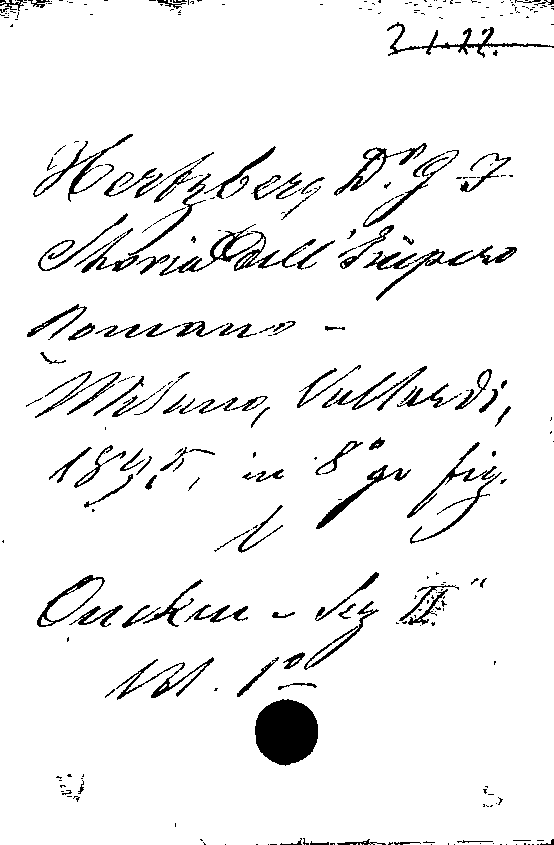 3.1.22.
Hertzberg Dr. G F
Storia dell'Impero
Romano -
Milano, Vallardi,
1895, in 8° gr fig.
Oncken - Sez II"
Vol. 1°